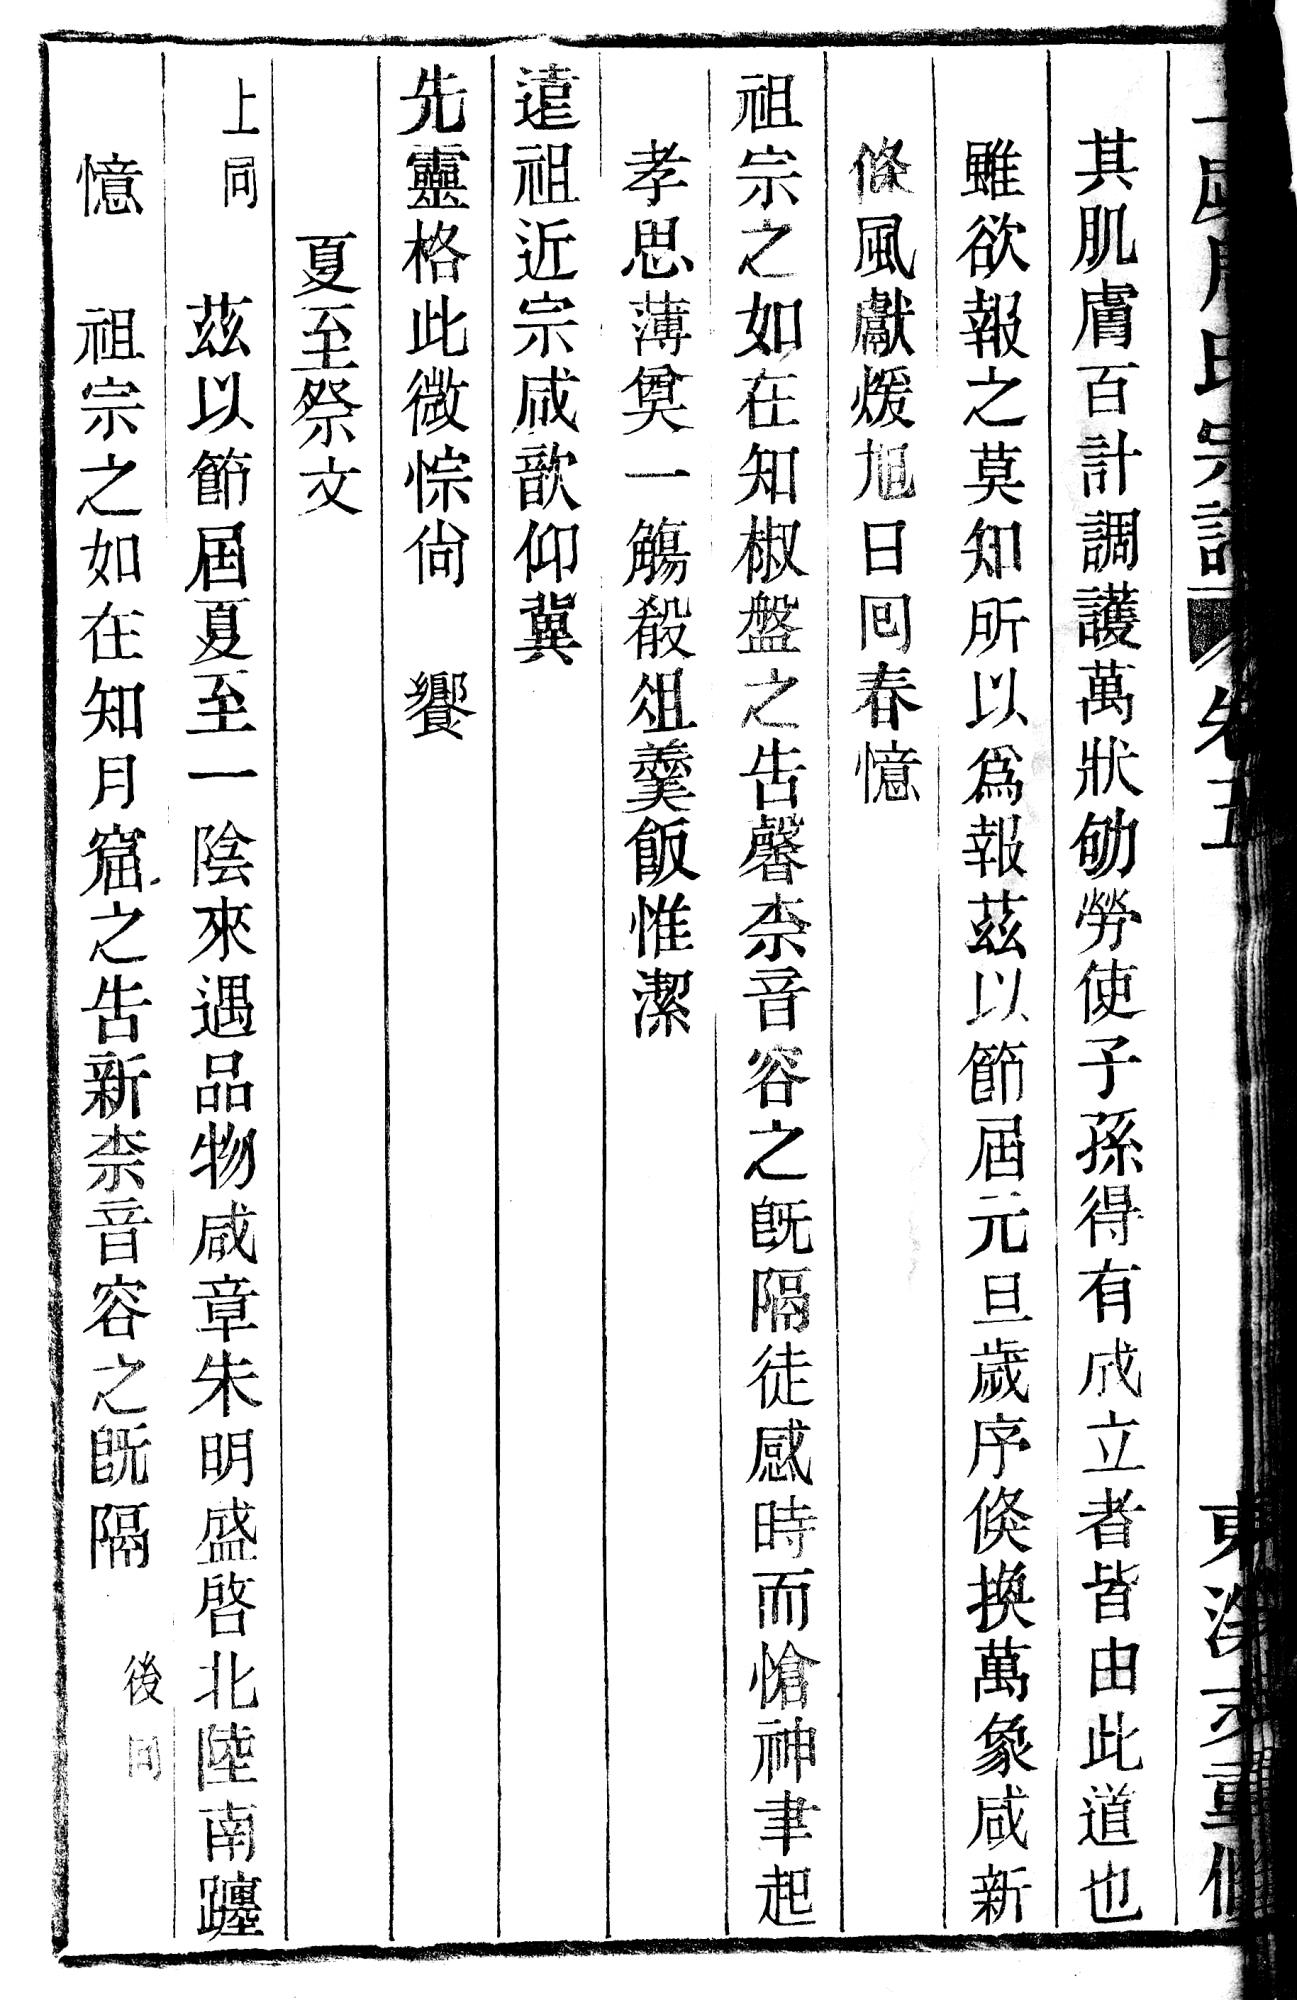 氏宗譜 卷五
其肌膚百計調護萬狀劬勞使子孫得有成立者皆由此道也
雖欲報之莫知所以爲報茲以節屆元旦歲序倐換萬象咸新
條風獻煖旭日囘春憶
祖宗之如在知椒盤之告馨柰音容之旣隔徒感時而愴神聿起
孝思薄奠一觴殽俎羹飯惟潔
遠祖近宗咸歆仰冀
先靈格此微悰尙　饗
夏至祭文
上同　茲以節屆夏至一陰來遇品物咸章朱明盛啓北陸南躔
憶　祖宗之如在知月窟之告新柰音容之旣隔　後同